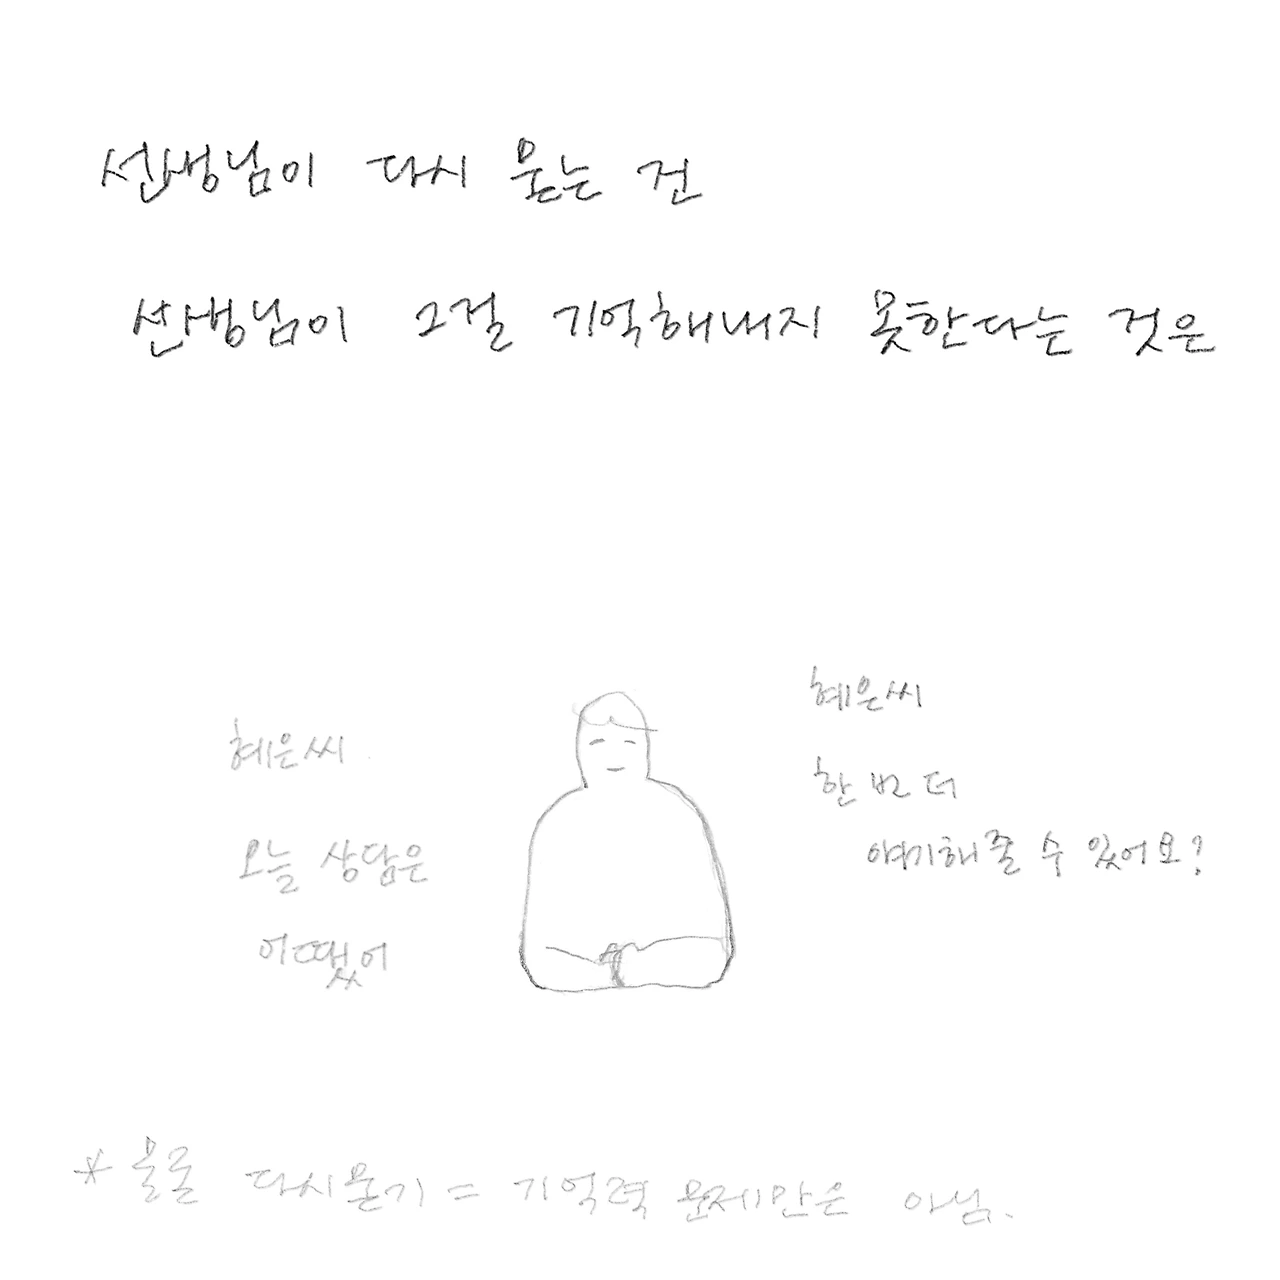 선생님이 다시 묻는 건
선생님이 그걸 기억해내지 못한다는 것은
혜은씨
오늘 상담은
어땠어
혜은씨
한 번 더
얘기해줄 수 있어요?
* 물론 다시묻기 = 기억력 문제만은 아님.